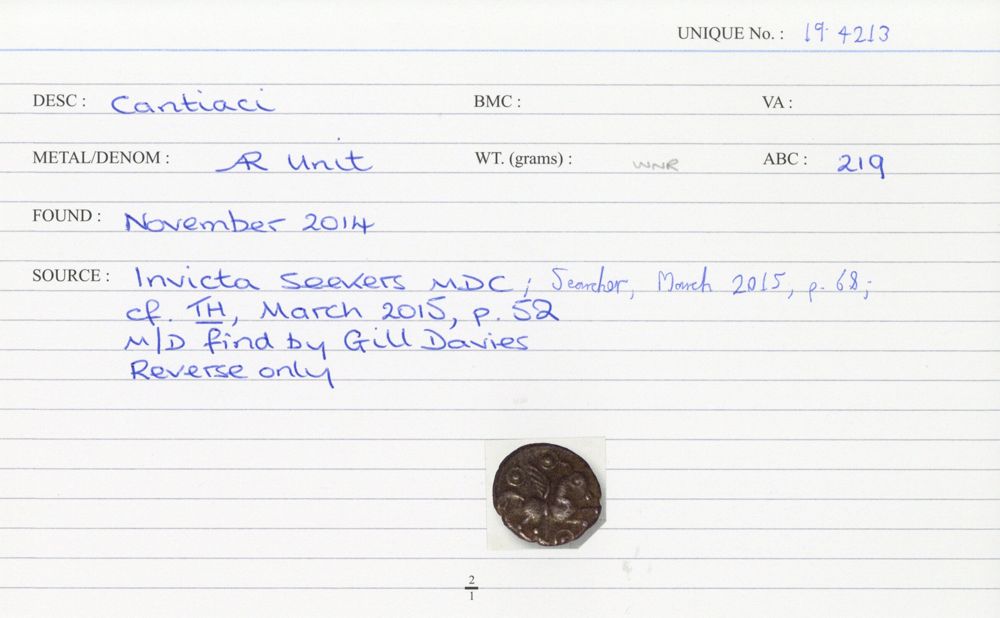 UNIQUE No. : 19.4213
DESC : Cantiaci BMC : VA :
METAL/DENOM : ÆR Unit WT. (grams) : WNR ABC : 219
FOUND : November 2014
SOURCE : Invicta Seekers MDC; Searcher, March 2015, p. 68;
cf. TH, March 2015, p. 52
M/D find by Gill Davies
Reverse only
2
1